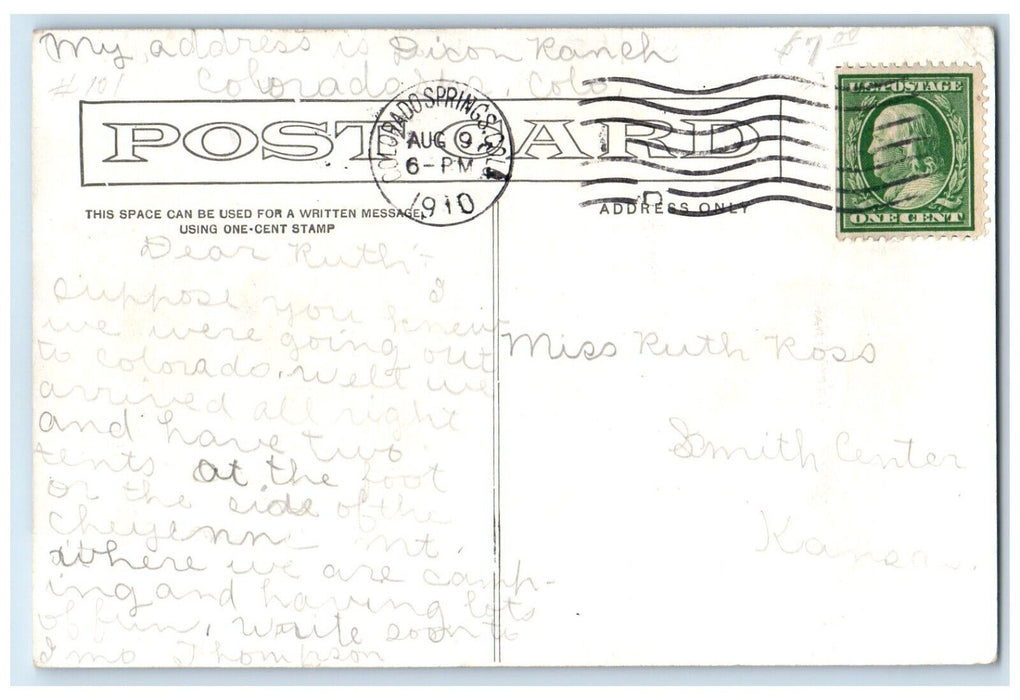 My address is Dixon Ranch
$7.00
#101
Colorado Spg. Colo.
POST CARD
COLORADO SPRINGS, COLO.
AUG 9
6-PM
1910
U.S. POSTAGE
ONE CENT
THIS SPACE CAN BE USED FOR A WRITTEN MESSAGE,
USING ONE-CENT STAMP
ADDRESS ONLY
Dear Ruth:-
I
suppose you knew
we were going out
to Colorado. Well we
arrived all right
and have two
tents at the foot
or the side of the
Cheyenne Mt.
where we are camp-
ing and having lots
of fun. Write soon to
Imo Thompson
Miss Ruth Ross
Smith Center
Kansas.